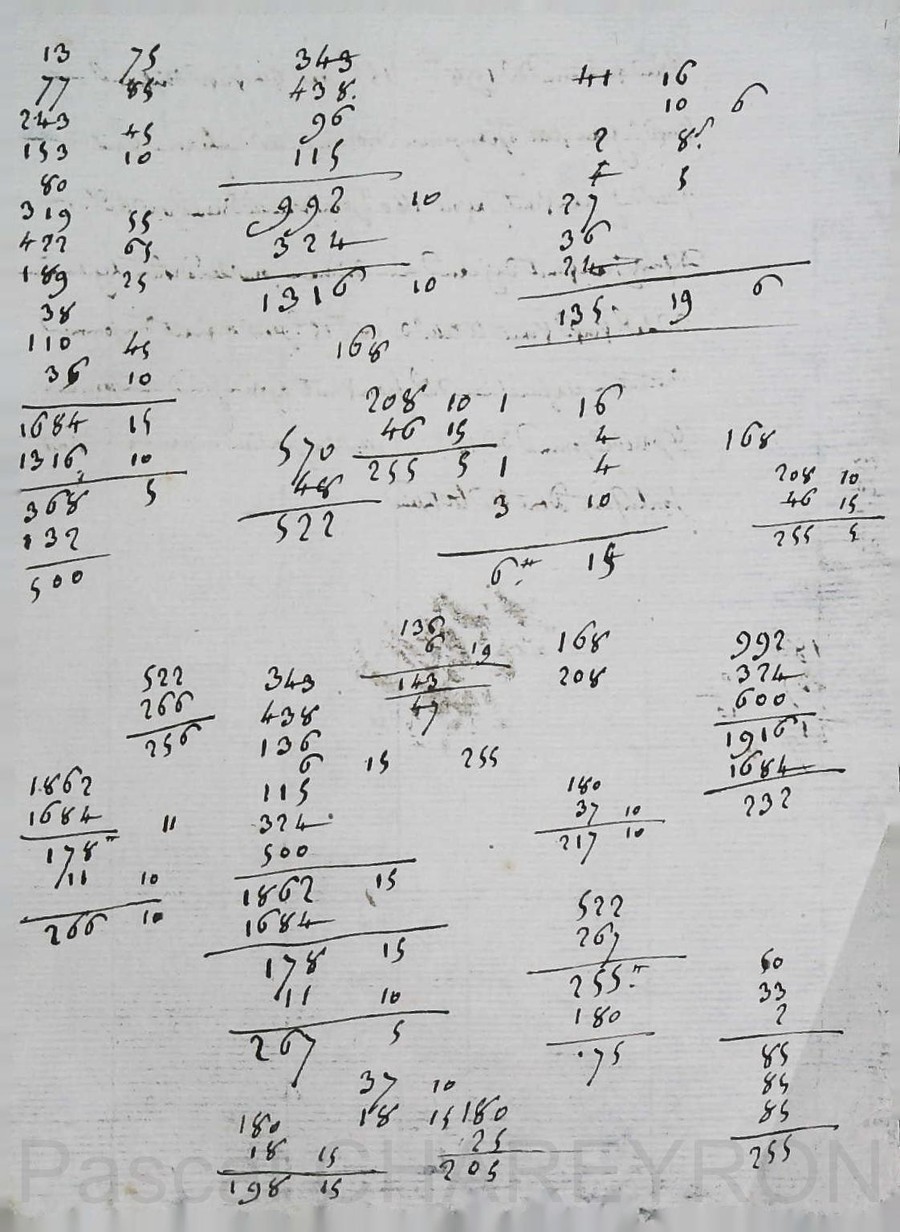 13 75
77 85
243
153 45
80 10
319 55
422 65
189 25
38
110 45
36 10
1684 15
1316 10
368 5
132
500
343
438
96
115
992 10
324
1316 10
168
16
10 6
2 8
5
27
36
135 19 6
208 10
46 15
255 5
1 16
4
1 4
3 10
6 15
570
48
522
168
208 10
46 15
255 5
136
6 19
143
47
168
208
992
324
600
1916
1684
232
522
266
256
343
438
136
6 15
115
324
500
1862 15
1684
178 15
11 10
267 5
255
1862
1684
178 11
11 10
266 10
180
37 10
217 10
522
267
255
180
75
50
33
2
85
85
85
255
37 10
18 15
180
18 15
198 15
180
25
205
Pascal CHAREYRON